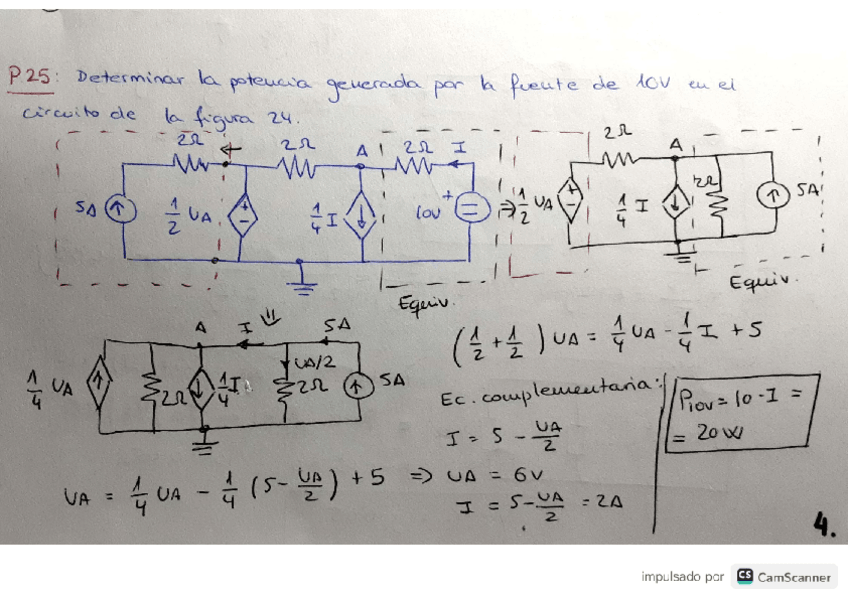 P25: Determinar la potencia generada por la fuente de 10V en el
circuito de la figura 24.
2Ω 2Ω A 2Ω I 2Ω A
5A 1/2 UA 1/4 I 10V + - ⇒ 1/2 UA + - 1/4 I 2Ω 5A
Equiv. Equiv.
A I ⇓ 5A
1/4 UA 2Ω 1/4 I UA/2 2Ω 5A
(1/2 + 1/2) UA = 1/4 UA - 1/4 I + 5
Ec. complementaria:
I = 5 - UA/2
P10V = 10 · I =
= 20W
UA = 1/4 UA - 1/4 (5 - UA/2) + 5 ⇒ UA = 6V
I = 5 - UA/2 = 2A
4.
impulsado por CS CamScanner